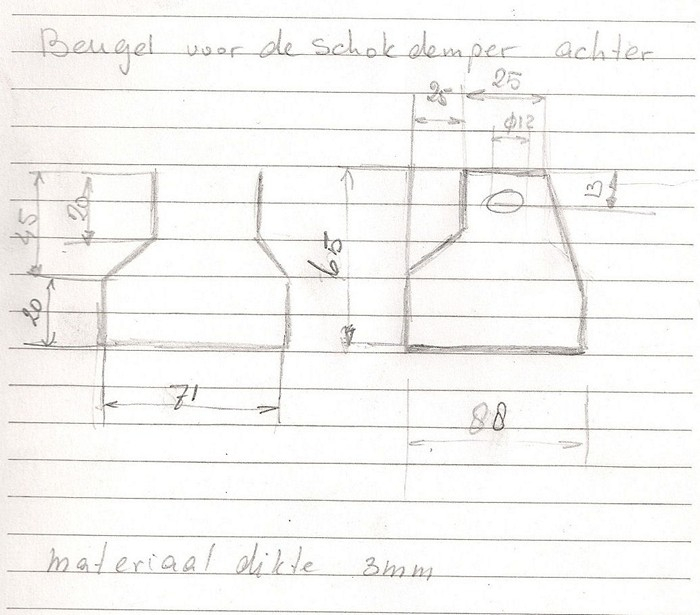 Beugel voor de schokdemper achter
25
25
ø12
13
45
20
65
20
71
88
materiaal dikte 3mm